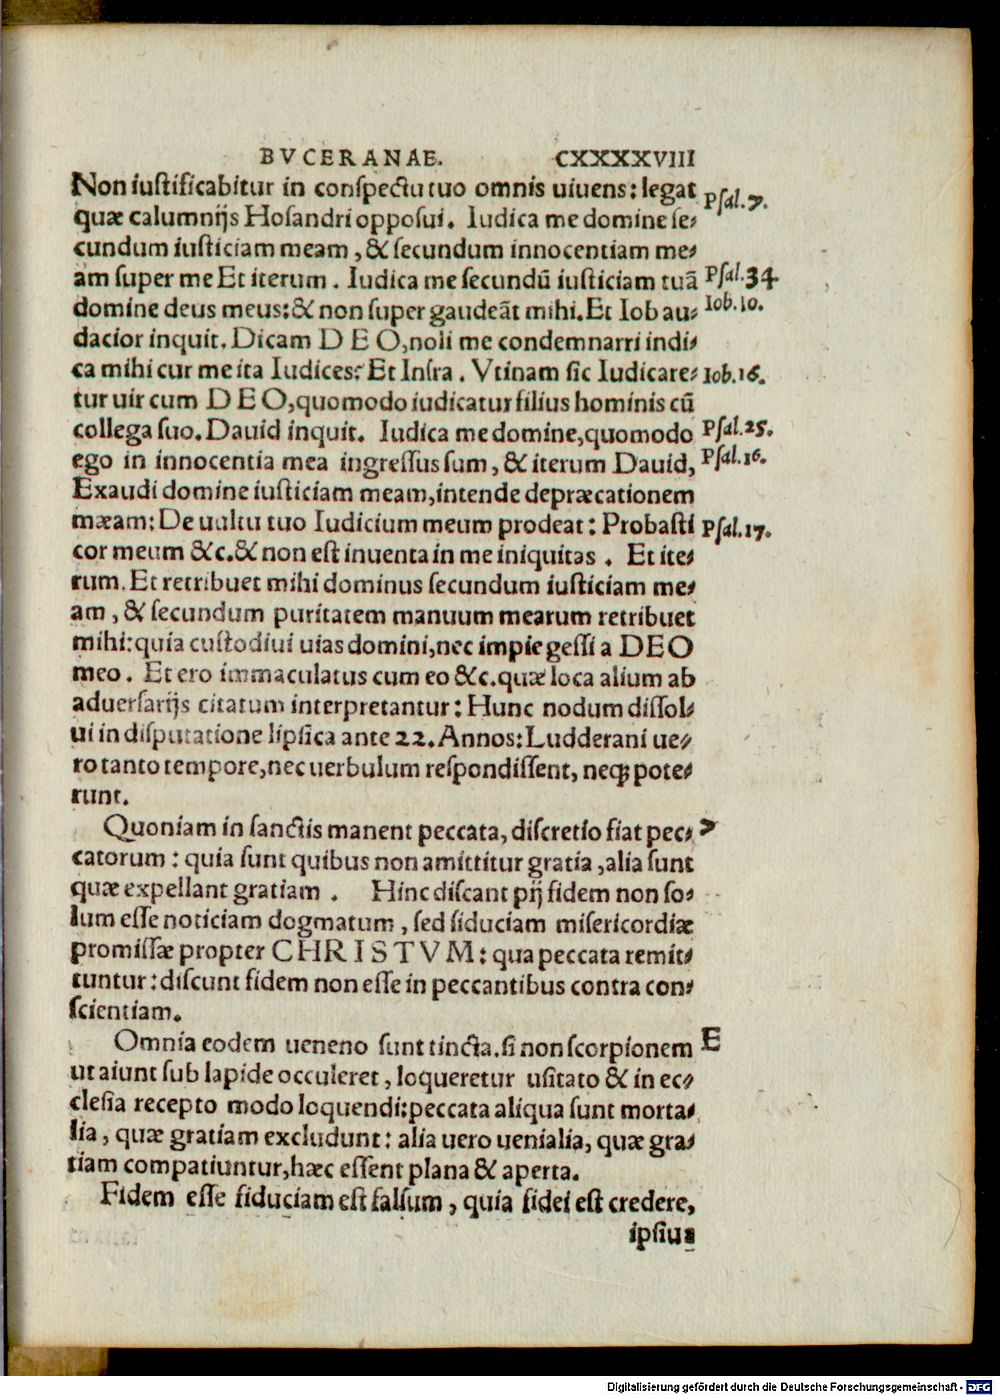 BVCERANAE. CXXXXVIII
Non iustificabitur in conspectu tuo omnis uiuens: legat Psal.7.
quæ calumnijs Hosandri opposui. Iudica me domine se⸗
cundum iusticiam meam, & secundum innocentiam me⸗
am super me Et iterum. Iudica me secundū iusticiam tuā Psal.34
domine deus meus: & non super gaudeāt mihi. Et Iob au⸗ Iob.10.
dacior inquit. Dicam DEO, noli me condemnarri indi⸗
ca mihi cur me ita Iudices? Et Infra. Vtinam sic Iudicare⸗ Iob.16.
tur uir cum DEO, quomodo iudicatur filius hominis cū
collega suo. Dauid inquit. Iudica me domine, quomodo Psal.25.
ego in innocentia mea ingressus sum, & iterum Dauid, Psal.16.
Exaudi domine iusticiam meam, intende depræcationem
mæam: De uultu tuo Iudicium meum prodeat: Probasti Psal.17.
cor meum &c. & non est inuenta in me iniquitas. Et ite⸗
rum. Et retribuet mihi dominus secundum iusticiam me⸗
am, & secundum puritatem manuum mearum retribuet
mihi: quia custodiui uias domini, nec impie gessi a DEO
meo. Et ero immaculatus cum eo &c. quæ loca alium ab
aduersarijs citatum interpretantur: Hunc nodum dissol⸗
ui in disputatione lipsica ante 22. Annos: Ludderani ue⸗
ro tanto tempore, nec uerbulum respondissent, neqꝫ pote⸗
runt.
Quoniam in sanctis manent peccata, discretio fiat pec⸗ >
catorum: quia sunt quibus non amittitur gratia, alia sunt
quæ expellant gratiam. Hinc discant pij fidem non so⸗
lum esse noticiam dogmatum, sed fiduciam misericordiæ
promissæ propter CHRISTVM: qua peccata remit⸗
tuntur: discunt fidem non esse in peccantibus contra con⸗
scientiam.
Omnia eodem ueneno sunt tincta. si non scorpionem E
ut aiunt sub lapide occuleret, loqueretur usitato & in ec⸗
clesia recepto modo loquendi: peccata aliqua sunt morta⸗
lia, quæ gratiam excludunt: alia uero uenialia, quæ gra⸗
tiam compatiuntur, hæc essent plana & aperta.
Fidem esse fiduciam est falsum, quia fidei est credere,
ipsius
Digitalisierung gefördert durch die Deutsche Forschungsgemeinschaft - DFG